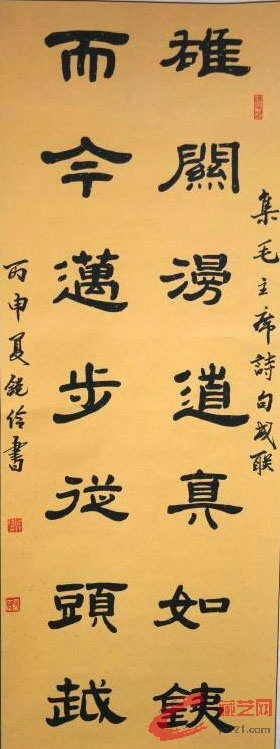 集毛主席詩句成联
雄關漫道真如銕
而今邁步從頭越
丙申夏書
藏艺网